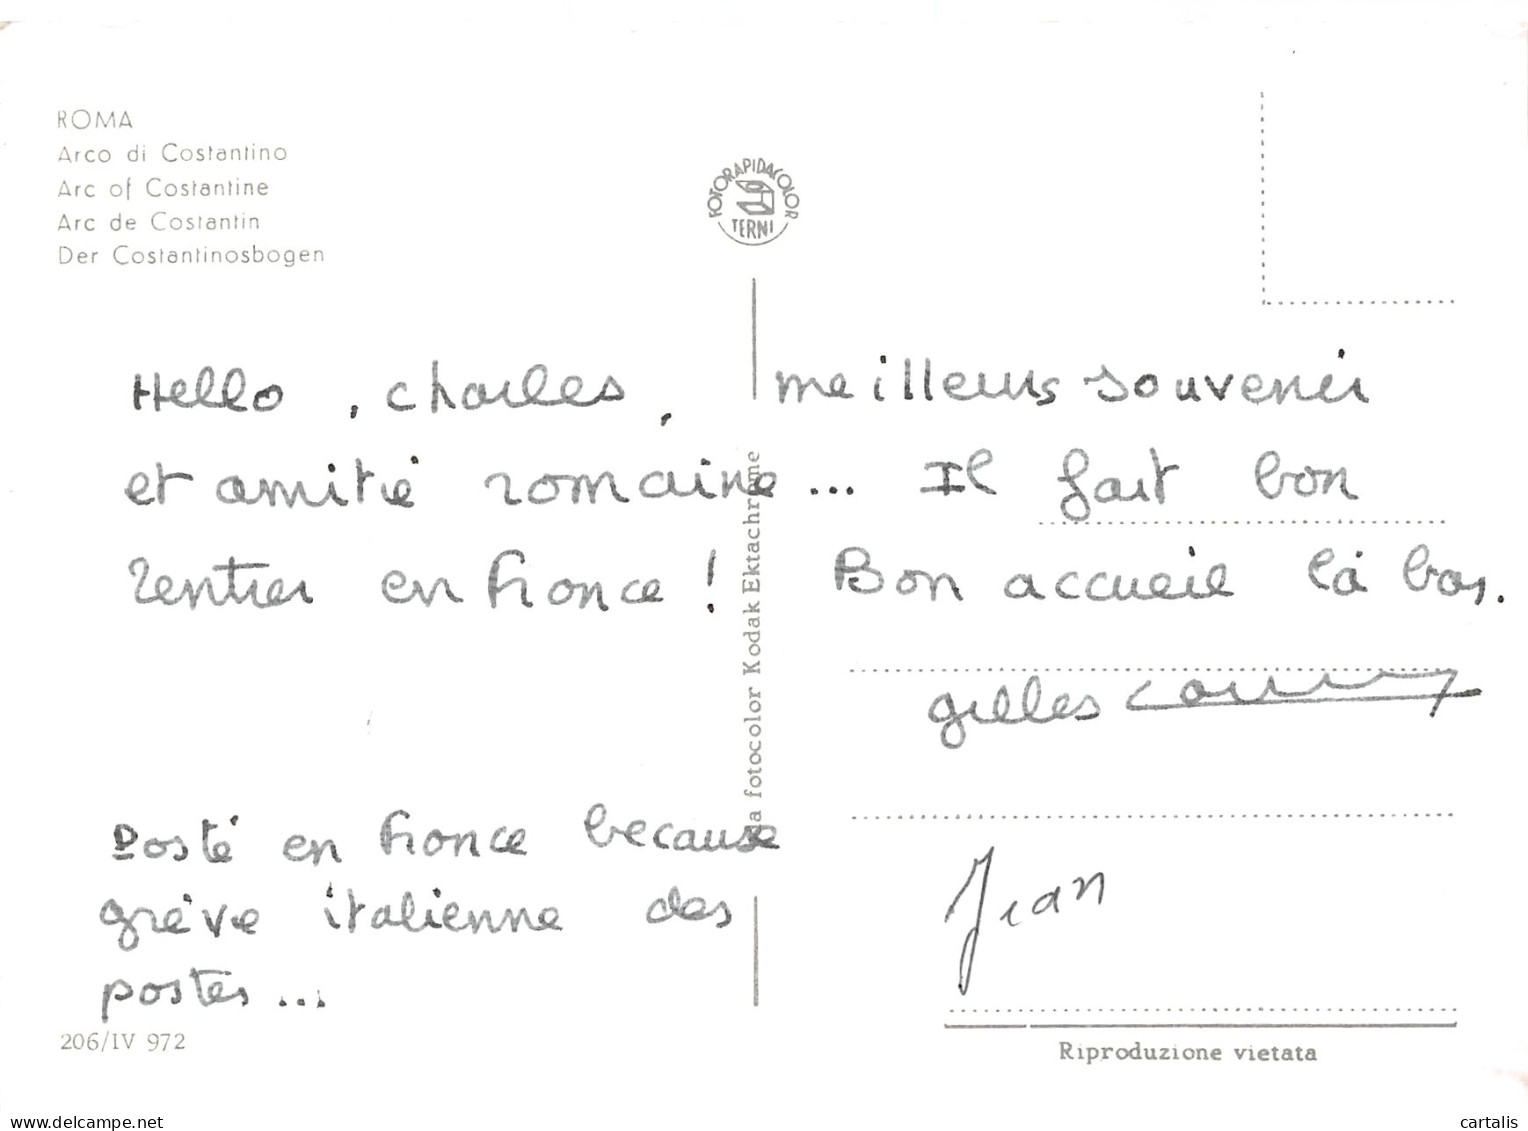 ROMA
Arco di Costantino
Arc of Costantine
Arc de Costantin
Der Costantinosbogen
FOTORAPIDACOLOR
TERNI
Hello, Charles, meilleurs souvenir
et amitié romaine... Il fait bon
rentrer en France! Bon accueil là bas.
gilles
Posté en France because
grève italienne des
postes...
Jean
da fotocolor Kodak Ektachrome
206/IV 972
Riproduzione vietata
delcampe.net
cartalis